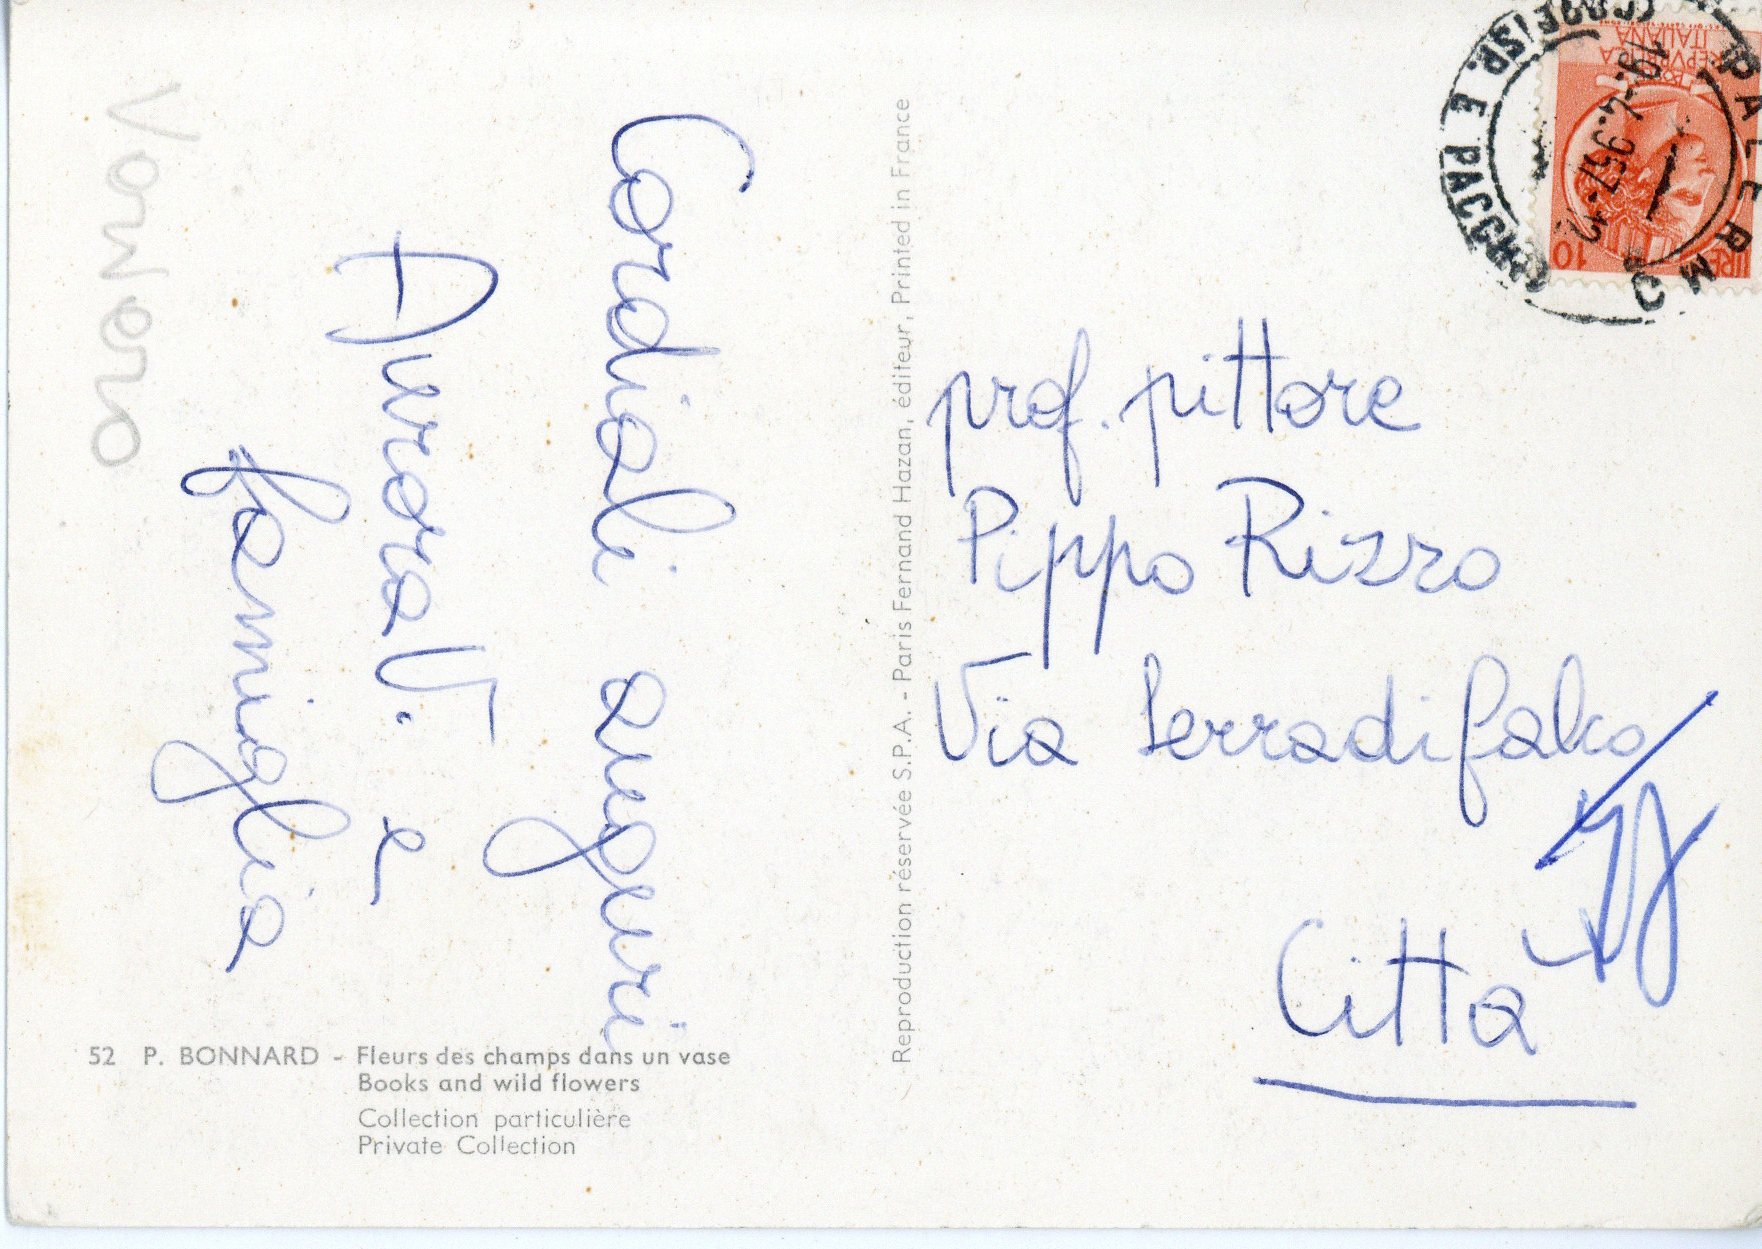 Cordiali auguri
Aurora V. e
famiglia
prof. pittore
Pippo Rizzo
Via Serradifalco
Città
Reproduction réservée S.P.A. - Paris Fernand Hazan, éditeur, Printed in France
52 P. BONNARD - Fleurs des champs dans un vase
Books and wild flowers
Collection particulière
Private Collection
PALERMO
CORR. E PACCHI
REPVBBLICA
ITALIANA
LIRE 10